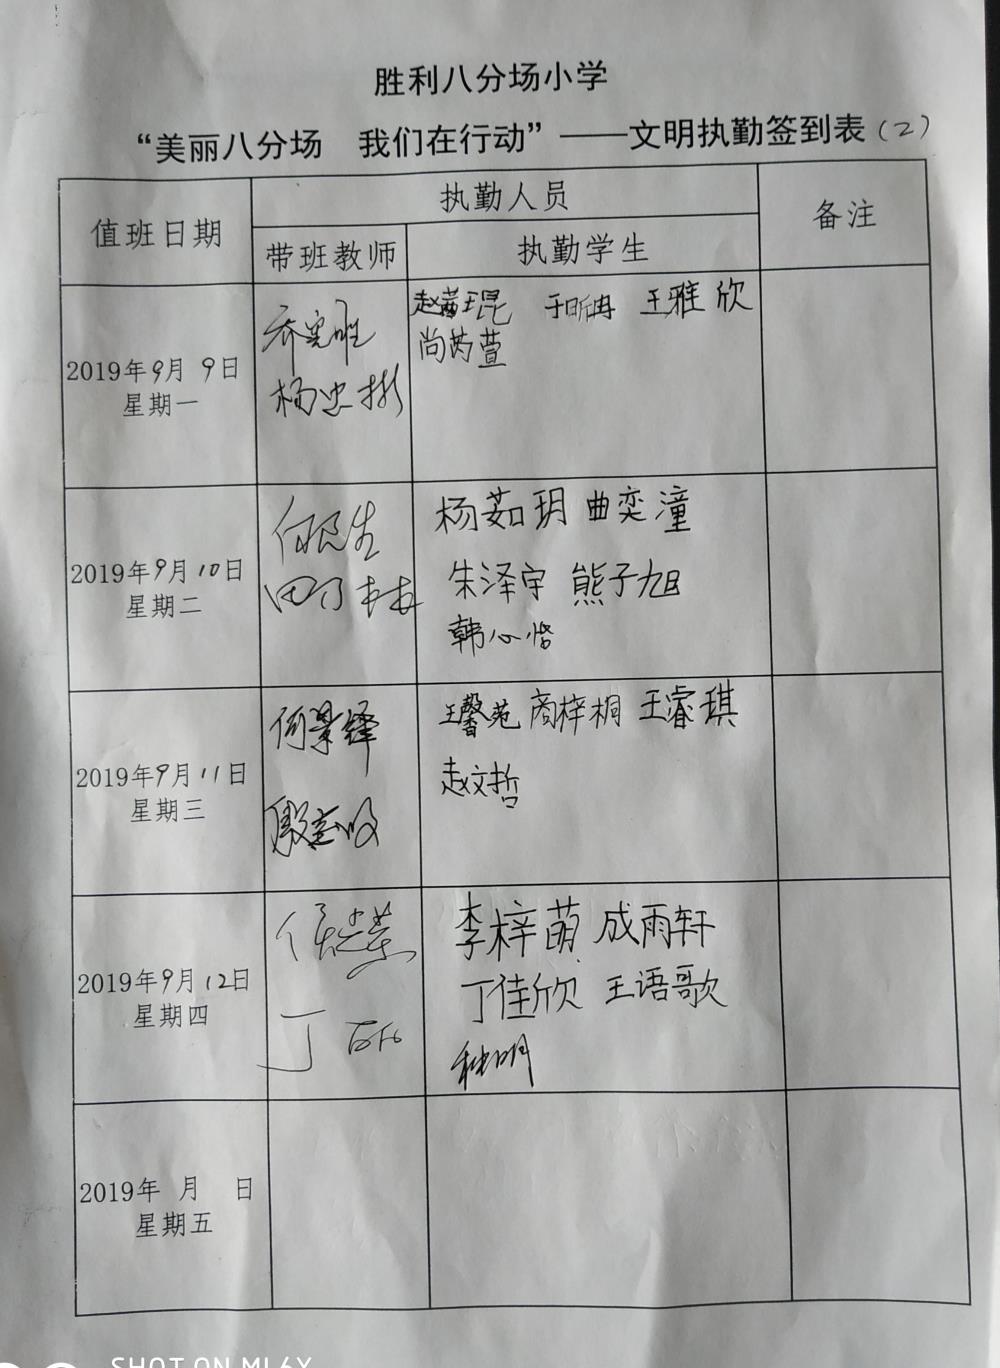 胜利八分场小学
“美丽八分场 我们在行动”——文明执勤签到表（2）
值班日期
执勤人员
备注
带班教师
执勤学生
2019年9月9日
星期一
杨忠彬
赵茜琨 于昕冉 王雅欣
尚芮萱
2019年9月10日
星期二
杨茹玥 曲奕潼
朱泽宇 熊子旭
韩心悦
2019年9月11日
星期三
何景绎
王馨苑 商梓桐 王睿琪
赵文哲
2019年9月12日
星期四
丁
李梓萌 成雨轩
丁佳欣 王语歌
2019年 月 日
星期五
SHOT ON MI 6X